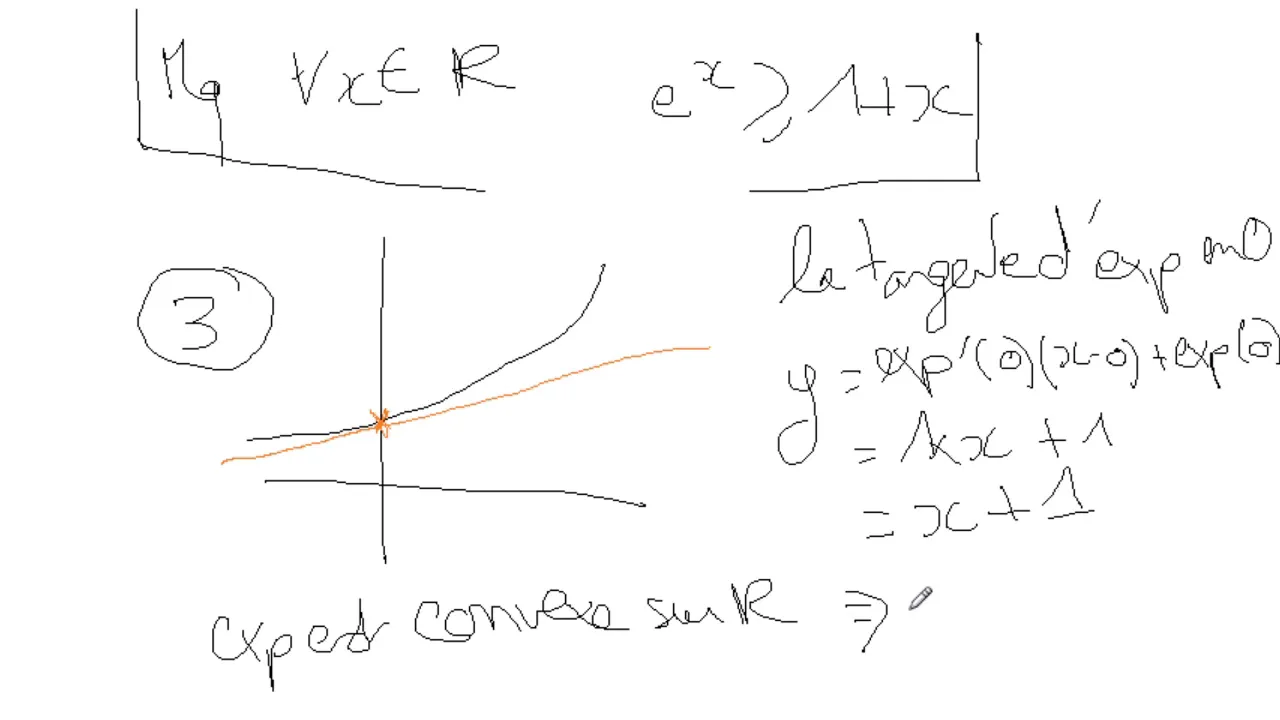 Mq ∀x∈ℝ e^x ⩾ 1+x
3
la tangente d'exp en 0
y = exp'(0)(x-0)+exp(0)
= 1×x + 1
= x + 1
exp est convexe sur ℝ ⇒